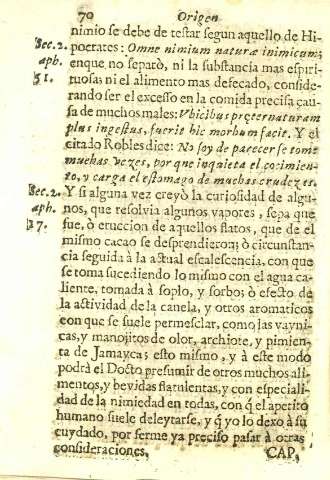 70 Origen
nimio se debe de testar segun aquello de Hi-
Sec. 2. pocrates: Omne nimium naturæ inimicum;
aph. enque no separò, ni la substancia mas espiri-
51. tuosa; ni el alimento mas defecado, conside-
rando ser el excesso en la comida precisa cau-
sa de muchos males: Vbi cibus præter naturam
plus ingestus, fuerit hic morbum facit. Y el
citado Robles dice: No soy de parecer se tome
muchas vezes, por que inquieta el cocimien-
to, y carga el estomago de muchas crudezas.
Sec. 2. Y si alguna vez creyò la curiosidad de algu-
aph. nos, que resolvia algunos vapores, sepa que
17. fue, ò eruccion de aquellos flatos, que de el
mismo cacao se desprendieron; ò circunstan-
cia seguida à la actual escalescencia, con que
se toma sucediendo lo mismo con el agua ca-
liente, tomada à soplo, y sorbo; ò efecto de
la actividad de la canela, y otros aromaticos
con que se suele permesclar, como las vayni-
cas, y manojitos de olor, archiote, y pimien-
ta de Jamayca; esto mismo, y à este modo
podrà el Docto presumir de otros muchos ali-
mentos, y bevidas flatulentas, y con especiali-
dad de la nimiedad en todas, con q̃ el apetito
humano suele deleytarse, y q̃ yo lo dexo à su
cuydado, por serme ya preciso pasar à otras
consideraciones. CAP.